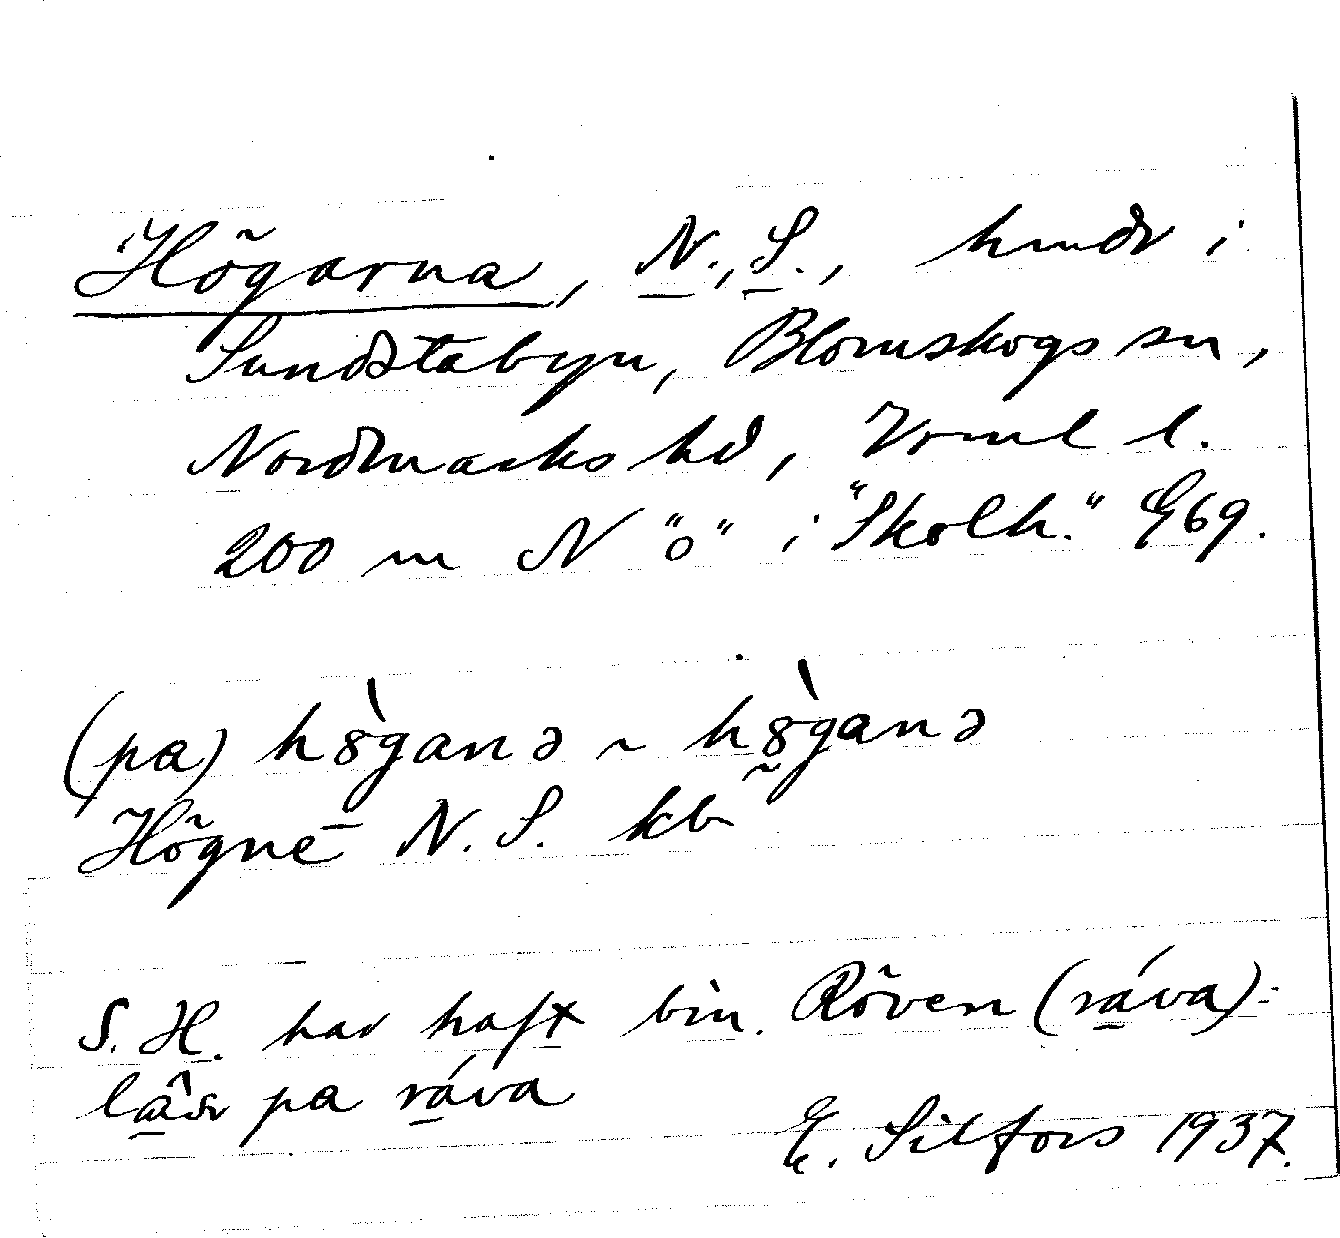 Högarna, N., S., hmdr i
Sundstabyn, Blomskogs sn,
Nordmarks hd, Vrml l.
200 m N "ö" i "Skolh." E69.
(pa) hö̀ganə ~ hö̀ganə
Högne N. S. kb
S. H. har haft bin. Röven (ráva):
pa ráva
E. Silfors 1937.